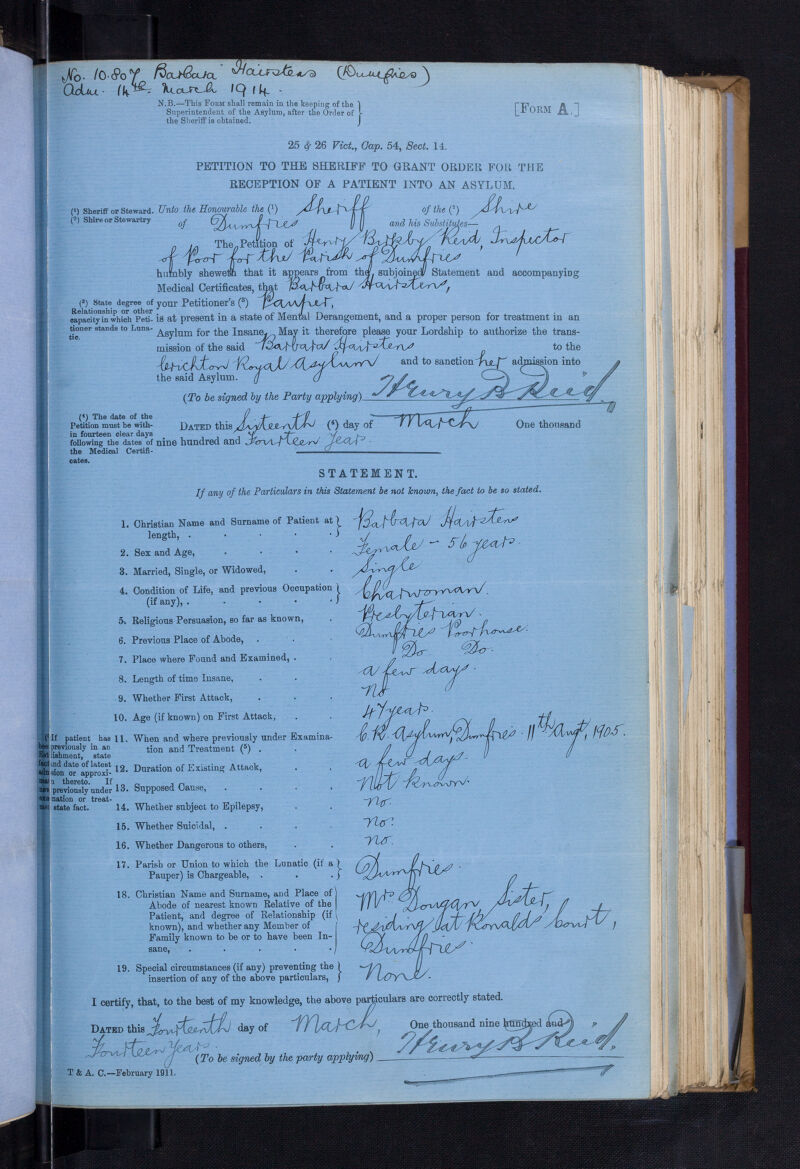 No. 10.807 Barbara Hairstens (Dumfries)
Adm. 14th. March 1914.
N.B.—This Form shall remain in the keeping of the
Superintendent of the Asylum, after the Order of
the Sheriff is obtained.
[Form A.]
25 & 26 Vict., Cap. 54, Sect. 14.
PETITION TO THE SHERIFF TO GRANT ORDER FOR THE
RECEPTION OF A PATIENT INTO AN ASYLUM.
(1) Sheriff or Steward.
(2) Shire or Stewartry
Unto the Honourable the (1) Sheriff of the (2) Shire
of Dumfries and his Substitutes—
The Petition of Henry Birkby Reid, Inspector
of Poor for the Parish of Dumfries
humbly sheweth that it appears from the subjoined Statement and accompanying
Medical Certificates, that Barbara Hairstens,
(3) State degree of
Relationship or other
capacity in which Peti-
tioner stands to Luna-
tic.
your Petitioner's (3) Pauper,
is at present in a state of Mental Derangement, and a proper person for treatment in an
Asylum for the Insane. May it therefore please your Lordship to authorize the trans-
mission of the said Barbara Hairstens to the
Crichton Royal Asylum and to sanction her admission into
the said Asylum.
(To be signed by the Party applying) Henry B Reid
(4) The date of the
Petition must be with-
in fourteen clear days
following the dates of
the Medical Certifi-
cates.
Dated this Sixteenth (4) day of March One thousand
nine hundred and Fourteen Years.
STATEMENT.
If any of the Particulars in this Statement be not known, the fact to be so stated.
1. Christian Name and Surname of Patient at
length, . Barbara Hairstens
2. Sex and Age, Female – 56 years.
3. Married, Single, or Widowed, Single
4. Condition of Life, and previous Occupation
(if any), . Charwoman.
5. Religious Persuasion, so far as known, Presbyterian.
6. Previous Place of Abode, . Dumfries Poorhouse.
7. Place where Found and Examined, . Do Do.
8. Length of time Insane, a few days.
9. Whether First Attack, No
10. Age (if known) on First Attack, 47 years.
11. When and where previously under Examina-
tion and Treatment (5) . C.R. Asylum, Dumfries. 11th Augt, 1905.
If patient has
previously in an
state
and date of latest
or approxi-
thereto. If
previously under
or treat-
state fact.
12. Duration of Existing Attack, a few days.
13. Supposed Cause, Not known.
14. Whether subject to Epilepsy, No.
15. Whether Suicidal, . No.
16. Whether Dangerous to others, No.
17. Parish or Union to which the Lunatic (if a
Pauper) is Chargeable, . Dumfries.
18. Christian Name and Surname, and Place of
Abode of nearest known Relative of the
Patient, and degree of Relationship (if
known), and whether any Member of
Family known to be or to have been In-
sane, Mrs Dougan, Sister,
residing at Ronalds Court,
Dumfries.
19. Special circumstances (if any) preventing the
insertion of any of the above particulars, None.
I certify, that, to the best of my knowledge, the above particulars are correctly stated.
Dated this Fourteenth day of March, One thousand nine hundred and
Fourteen Years.
(To be signed by the party applying) Henry B Reid.
T & A. C.—February 1911.